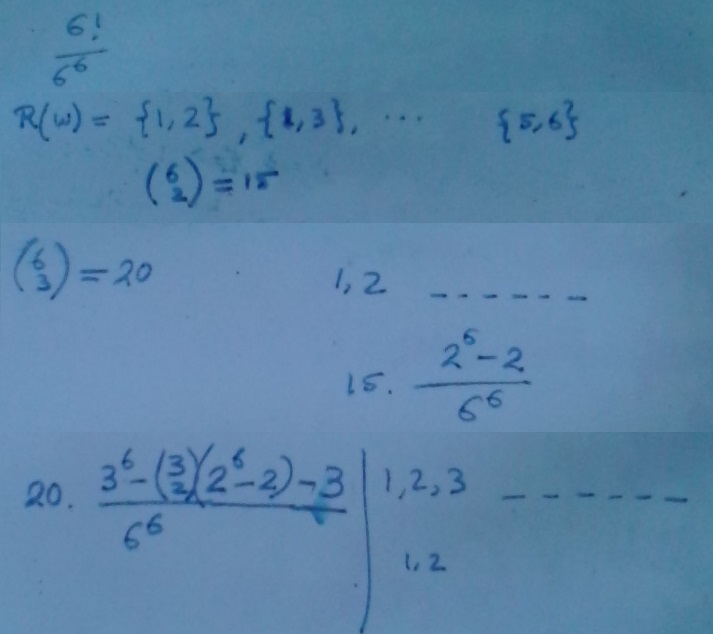 6!
6⁶
R(ω) = {1,2}, {1,3}, ... {5,6}
(6 2) = 15
(6 3) = 20
1,2 ------
15. 2⁶-2
6⁶
20. 3⁶-(3 2)(2⁶-2)-3
6⁶
1,2,3 ------
1,2